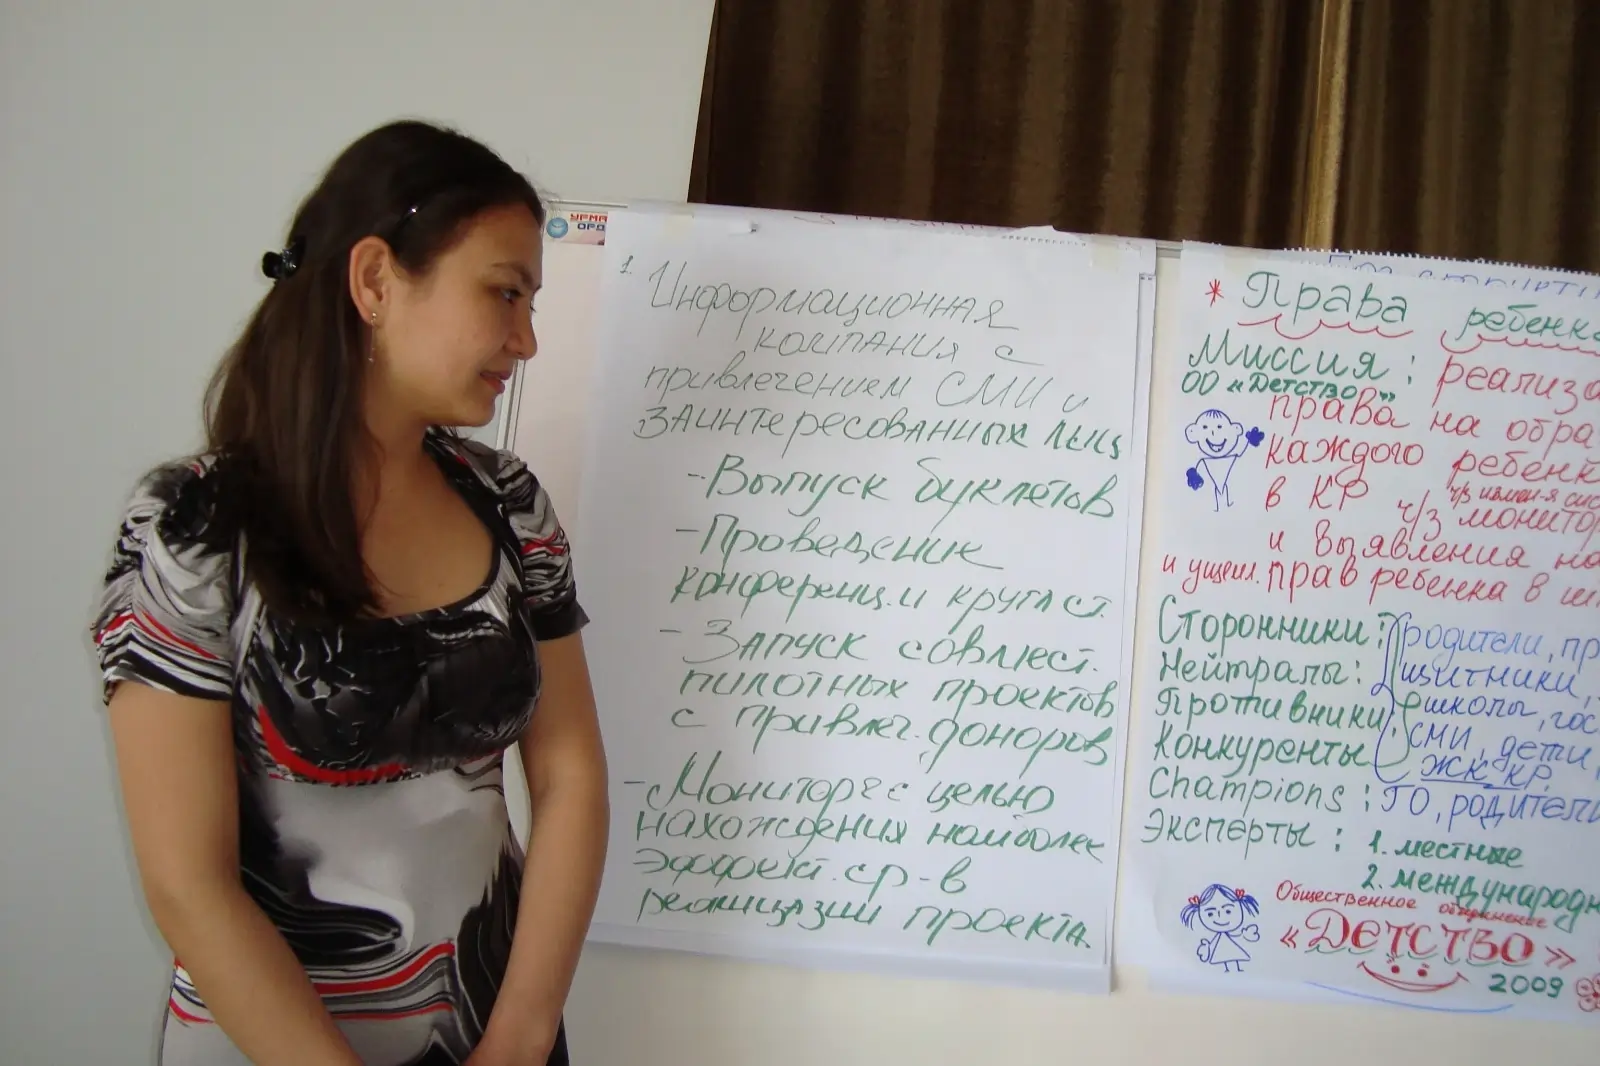 УРМА
ОРД
1.
Информационная
компания с
привлечением СМИ и
заинтересованных лиц
- Выпуск буклетов
- Проведение
конференц. и кругл ст.
- Запуск совмест.
пилотных проектов
с привлеч. доноров
- Монитор-г с целью
нахождения наиболее
эффект. ср-в
реализазии проекта.
* Права ребенка
Миссия: реализа
ОО «Детство»
права на обра
каждого ребенк
в КР ч/з монитор
ч/з измен-я сис
и выявления на
и ущем. прав ребенка в ш
Сторонники: родители, пр
Нейтралы: щитники,
Противники: школы, гос
Конкуренты СМИ, дети,
ЖК КР.
Champions: ГО, родители
Эксперты: 1. местные
2. международн
Общественное объединение
«Детство»
2009